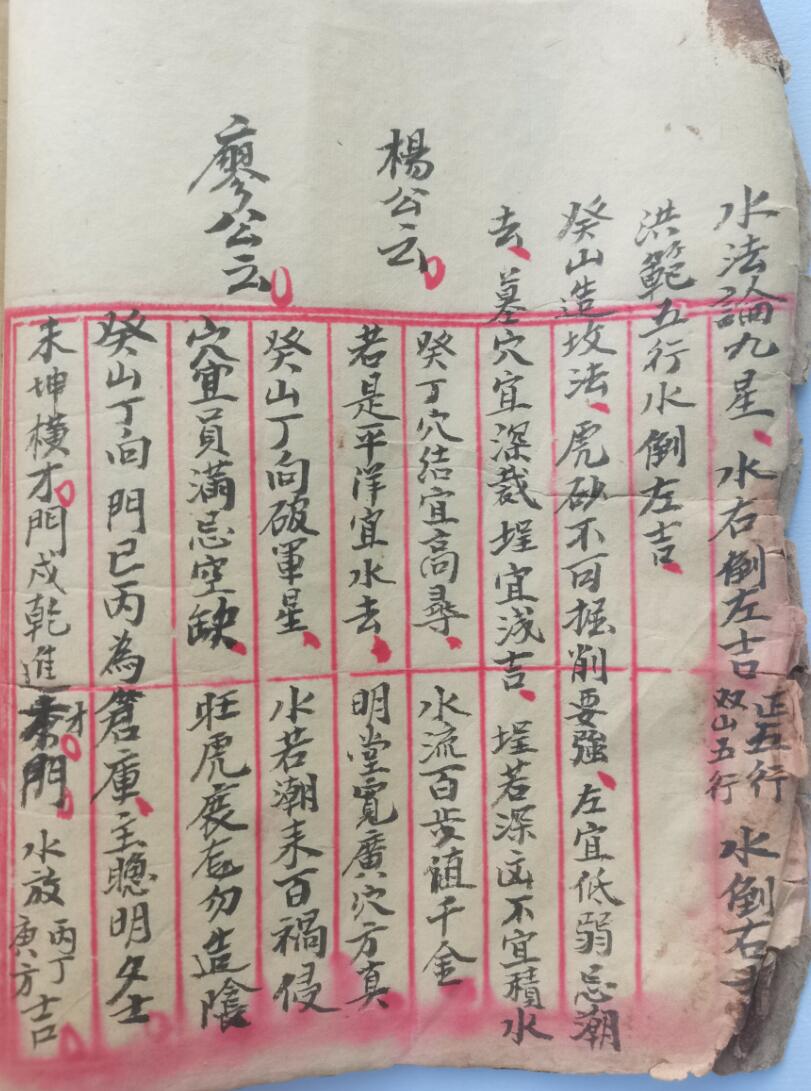 水法論九星、水右倒左吉 正五行 双山五行 水倒右
洪範五行水倒左吉、
癸山造坟法、虎砂不可掘削要強、左宜低弱忌潮
去、墓穴宜深裁埕宜浅吉、埕若深凶不宜積水
癸丁穴結宜高尋、水流百步值千金
楊公云
若是平洋宜水去、明堂寬廣穴方真
癸山丁向破軍星、水若潮来百禍侵
廖公云
穴宜員满忌空缺、旺虎衰龙勿造陰
癸山丁向門巳丙為倉庫、主聰明文士
未坤横才門戍乾進才門 水放丙丁庚方吉